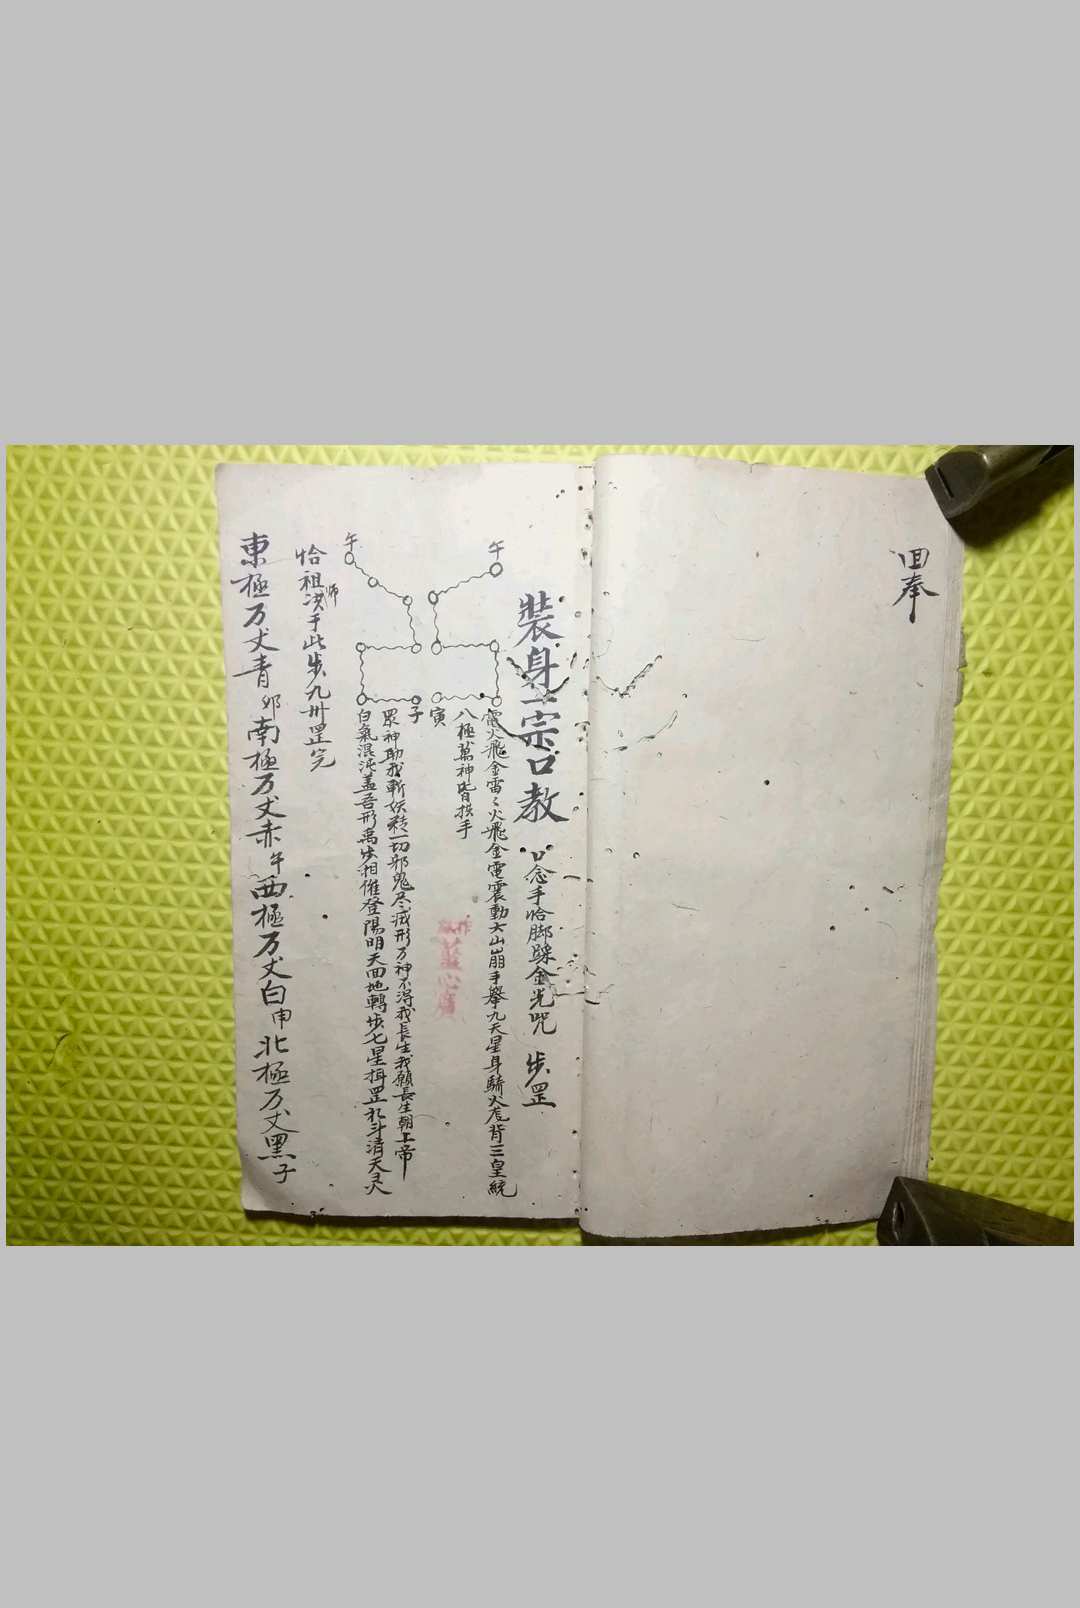 回奉
裝身一宗口教 口念手恰脚踩金光咒 步罡
午
電火飛金雷〻火飛金電震動大山崩手舉九天星身騎火虎背三皇統
八極萬神皆拱手
寅
子
眾神助我斬妖精一切邪鬼尽滅形万神不得我長生我願長生朝上帝
午
白氣混沌盖吾形禹步相催登陽明天回地轉步七星揖罡扎斗清天灵
恰祖师决手此步九州罡完
東極万丈青卯南極万丈赤午西極万丈白申北極万丈黑子